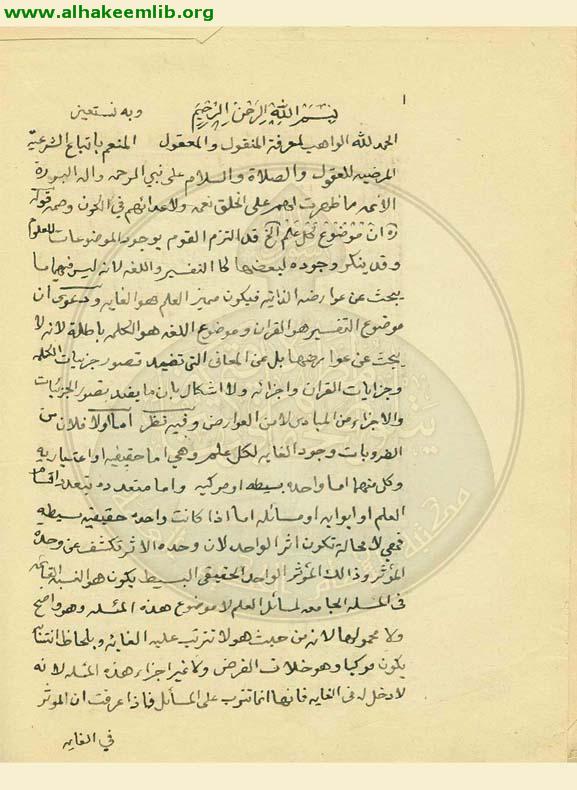 www.alhakeemlib.org
١
بِسْمِ اللهِ الرَّحْمٰنِ الرَّحِيمِ وبه نستعين
الحمد لله الواهب لمعرفة المنقول والمعقول المنعم باتباع الشرعية
المرضيه للعقول والصلاة والسلام على نبي الرحمه واله البررة
الائمه ما ظهرت لهم على الخلق نعمه ولاعدائهم في الكون وصمه قوله
ره ان موضوع كل علم الخ قد التزم القوم بوجود الموضوعات للعلوم
وقد ينكر وجوده لبعضها كالتفسير واللغه لانه ليس فيهما ما
يبحث عن عوارضه الذاتيه فيكون مميز العلم هو الغايه ودعوى ان
موضوع التفسير هو القران وموضوع اللغه هو الكلمه باطلة لانه لا
يبحث عن عوارضهما بل عن المعاني التي تفيد تصور جزئيات الكلمه
وجزئيات القران واجزائه ولا اشكال بان ما يفيد تصور الجزئيات
والاجزاء من المبادى لا من العوارض وفيه نظر اما اولا فلان من
الضروريات وجود الغايه لكل علم وهي اما حقيقيه او اعتباريه
وكل منهما اما واحده بسيطه او مركبه واما متعدده بتعدد اقسام
العلم او ابوابه او مسائله اما اذا كانت واحده حقيقيه بسيطه
فهي لا محالة تكون اثر الواحد لان وحده الاثر تكشف عن وحدة
المؤثر وذالك المؤثر الواحد الحقيقي البسيط يكون هو النسبة القائمه
في المسئله الجامعه لمسائل العلم لا موضوع هذه المسئله وهو واضح
ولا محمولها لانه من حيث هو لا تترتب عليه الغايه وبلحاظ انتسابه
يكون مركبا وهو خلاف الفرض ولا غير اجزاء هذه المسئله لانه
لا دخل له في الغايه فانها انما تترتب على المسائل فاذا عرفت ان الموثر
في الغايه